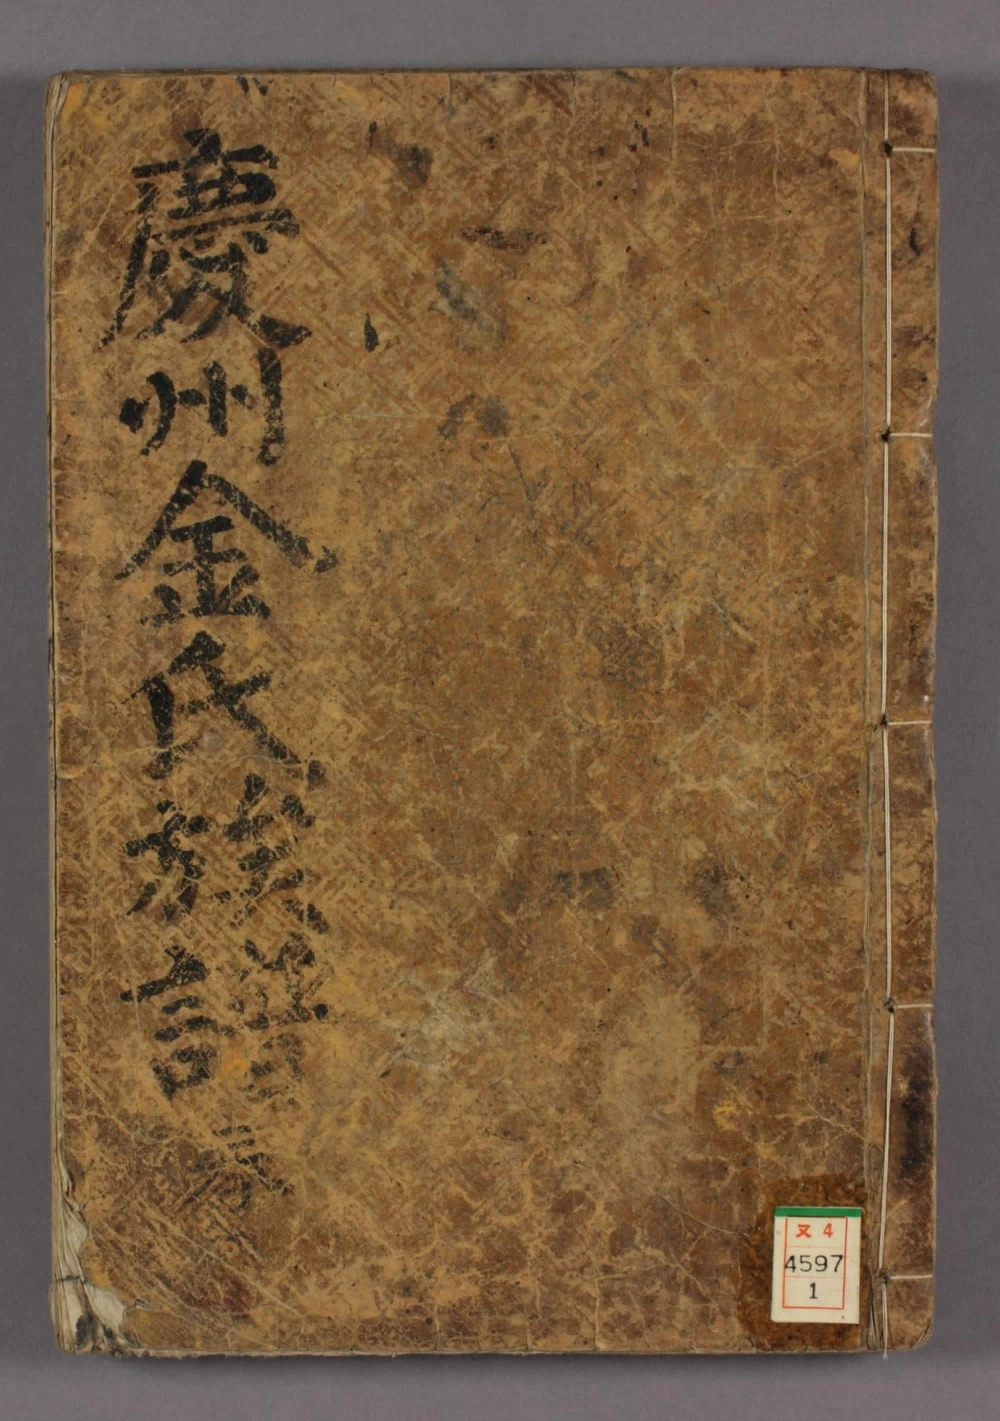 慶州金氏族譜 春
又4
4597
1